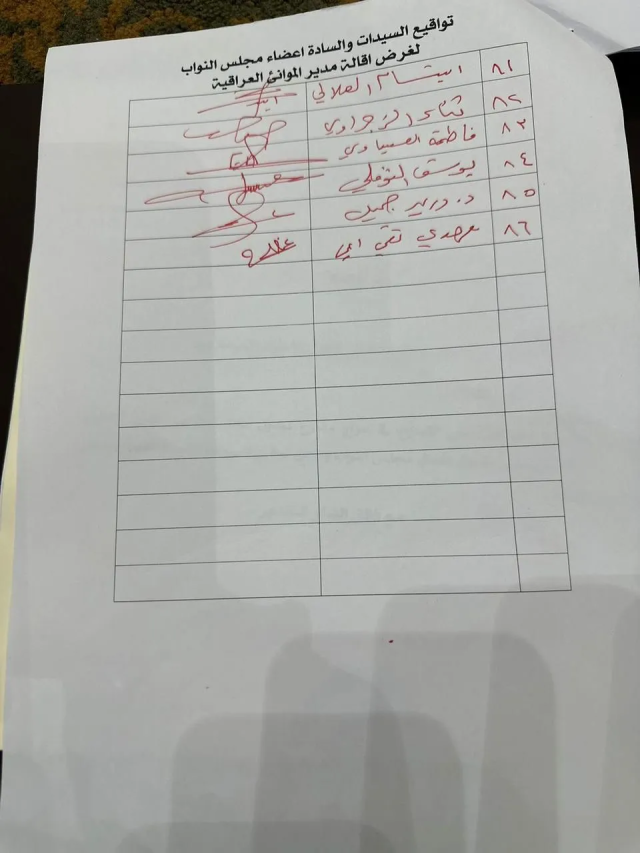 تواقيع السيدات والسادة اعضاء مجلس النواب
لغرض اقالة مدير الموانئ العراقية
٨١ ابتسام الهلالي
٨٢ ثناء الزجراوي
٨٣ فاطمة العيساوي
٨٤ يوسف
٨٥ د. دريد جميل
٨٦ مهدي تقي